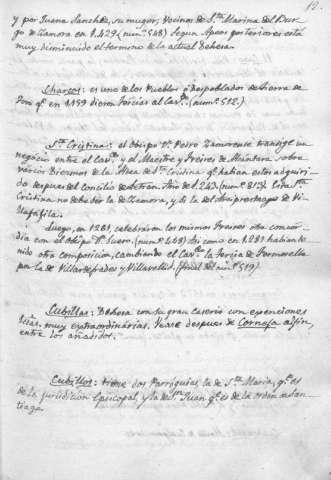 12.
y por Juana Sanchez, su muger, vecinos de Sta. Marina del Bur-
go de Zamora en 1.429 (num.º 548) Segun Apeos posteriores está
muy disminuido el termino de la actual Dehesa.
Charcos: es uno de los Pueblos ó Despoblados de tierra de
Toro qe. en 1159 dieron Tercias al Cavdo. (num.º 512.)
Sta. Cristina: el obispo Dn. Pedro Zamorense transige un
negocio entre el Cavdo. y el Maestre y Freires de Alcántara sobre
varios Diezmos de la Aldea de Sta. Cristina qe. habian estos adquiri-
do despues del Concilio de Letran. Año de 1.243 (num.º 813) Esta Sta.
Cristina no debe ser la de Zamora, y si la del Arciprestazgo de Vi-
llafafila.
Luego, en 1281, celebraron los mismos Freires otra concor-
dia con el Obispo Dn. Suero. (num.º 468) Asi como en 1.281 habian te-
nido otra composicion, cambiando el Cavdo. la tercia de Fermoselle
por la de Villardefrades y Villavellid. (final del num.º 519)
Cubillas: Dehesa con su gran Caserio con esenciones
muy extraordinarias. Vease despues de Corneja al fin,
entre los añadidos.
Cubillos: tiene dos Parroquias, la de Sta. Maria, qe. es
de la jurisdicion Episcopal, y la de Sn. Juan qe. es de la orden de San-
tiago.